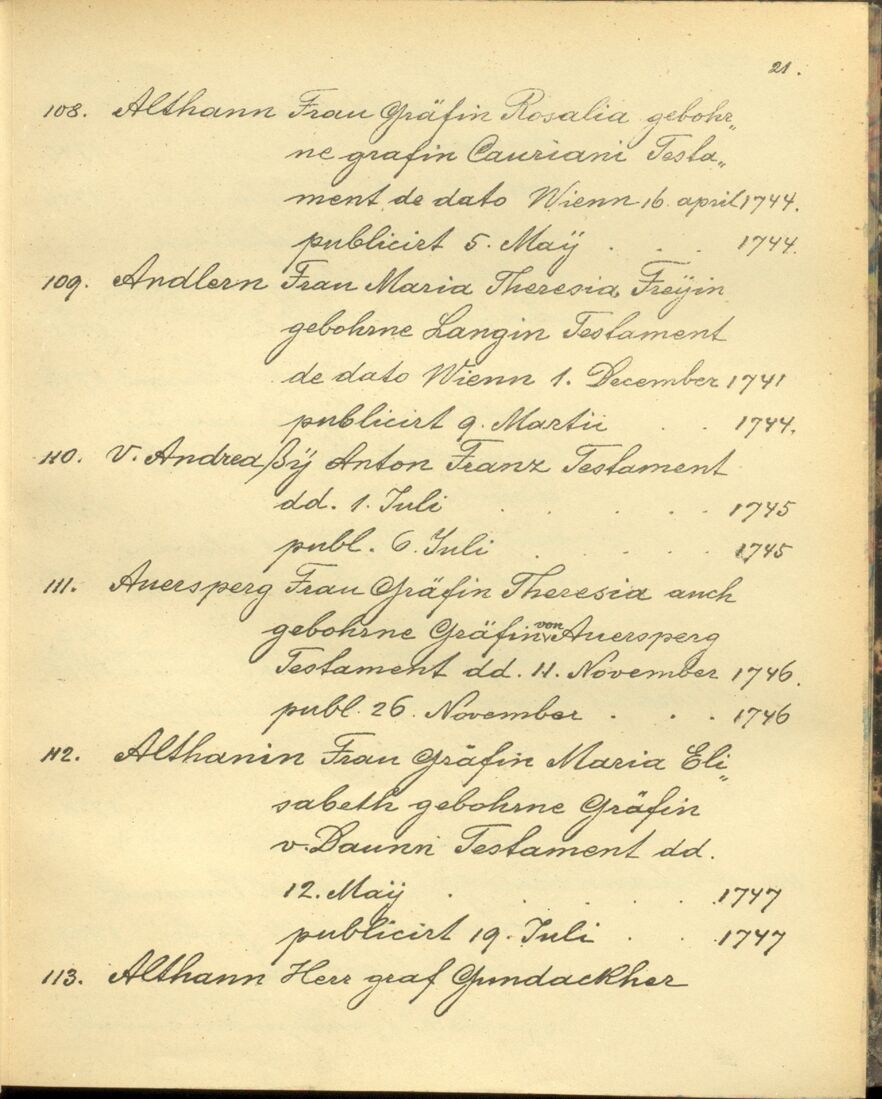 21.
108. Althann Frau Gräfin Rosalia gebohr„
ne grafin Cauriani Testa„
ment de dato Wienn 16. april 1744.
publicirt 5. Maÿ . . . 1744.
109. Andlern Frau Maria Theresia Freÿin
gebohrne Langin Testament
de dato Wienn 1. December 1741
publicirt 9. Martii . . 1744.
110. v. Andreaßÿ Anton Franz Testament
dd. 1. Juli . . . . . 1745
publ. 6. Juli . . . . . 1745
111. Auersperg Frau Gräfin Theresia auch
gebohrne Gräfin von Auersperg
Testament dd. 11. November 1746.
publ. 26. November . . . 1746
112. Althanin Frau Gräfin Maria Eli„
sabeth gebohrne Gräfin
v. Daunn Testament dd.
12. Maÿ . . . . . 1747
publicirt 19. Juli . . 1747
113. Althann Herr graf Gundackher